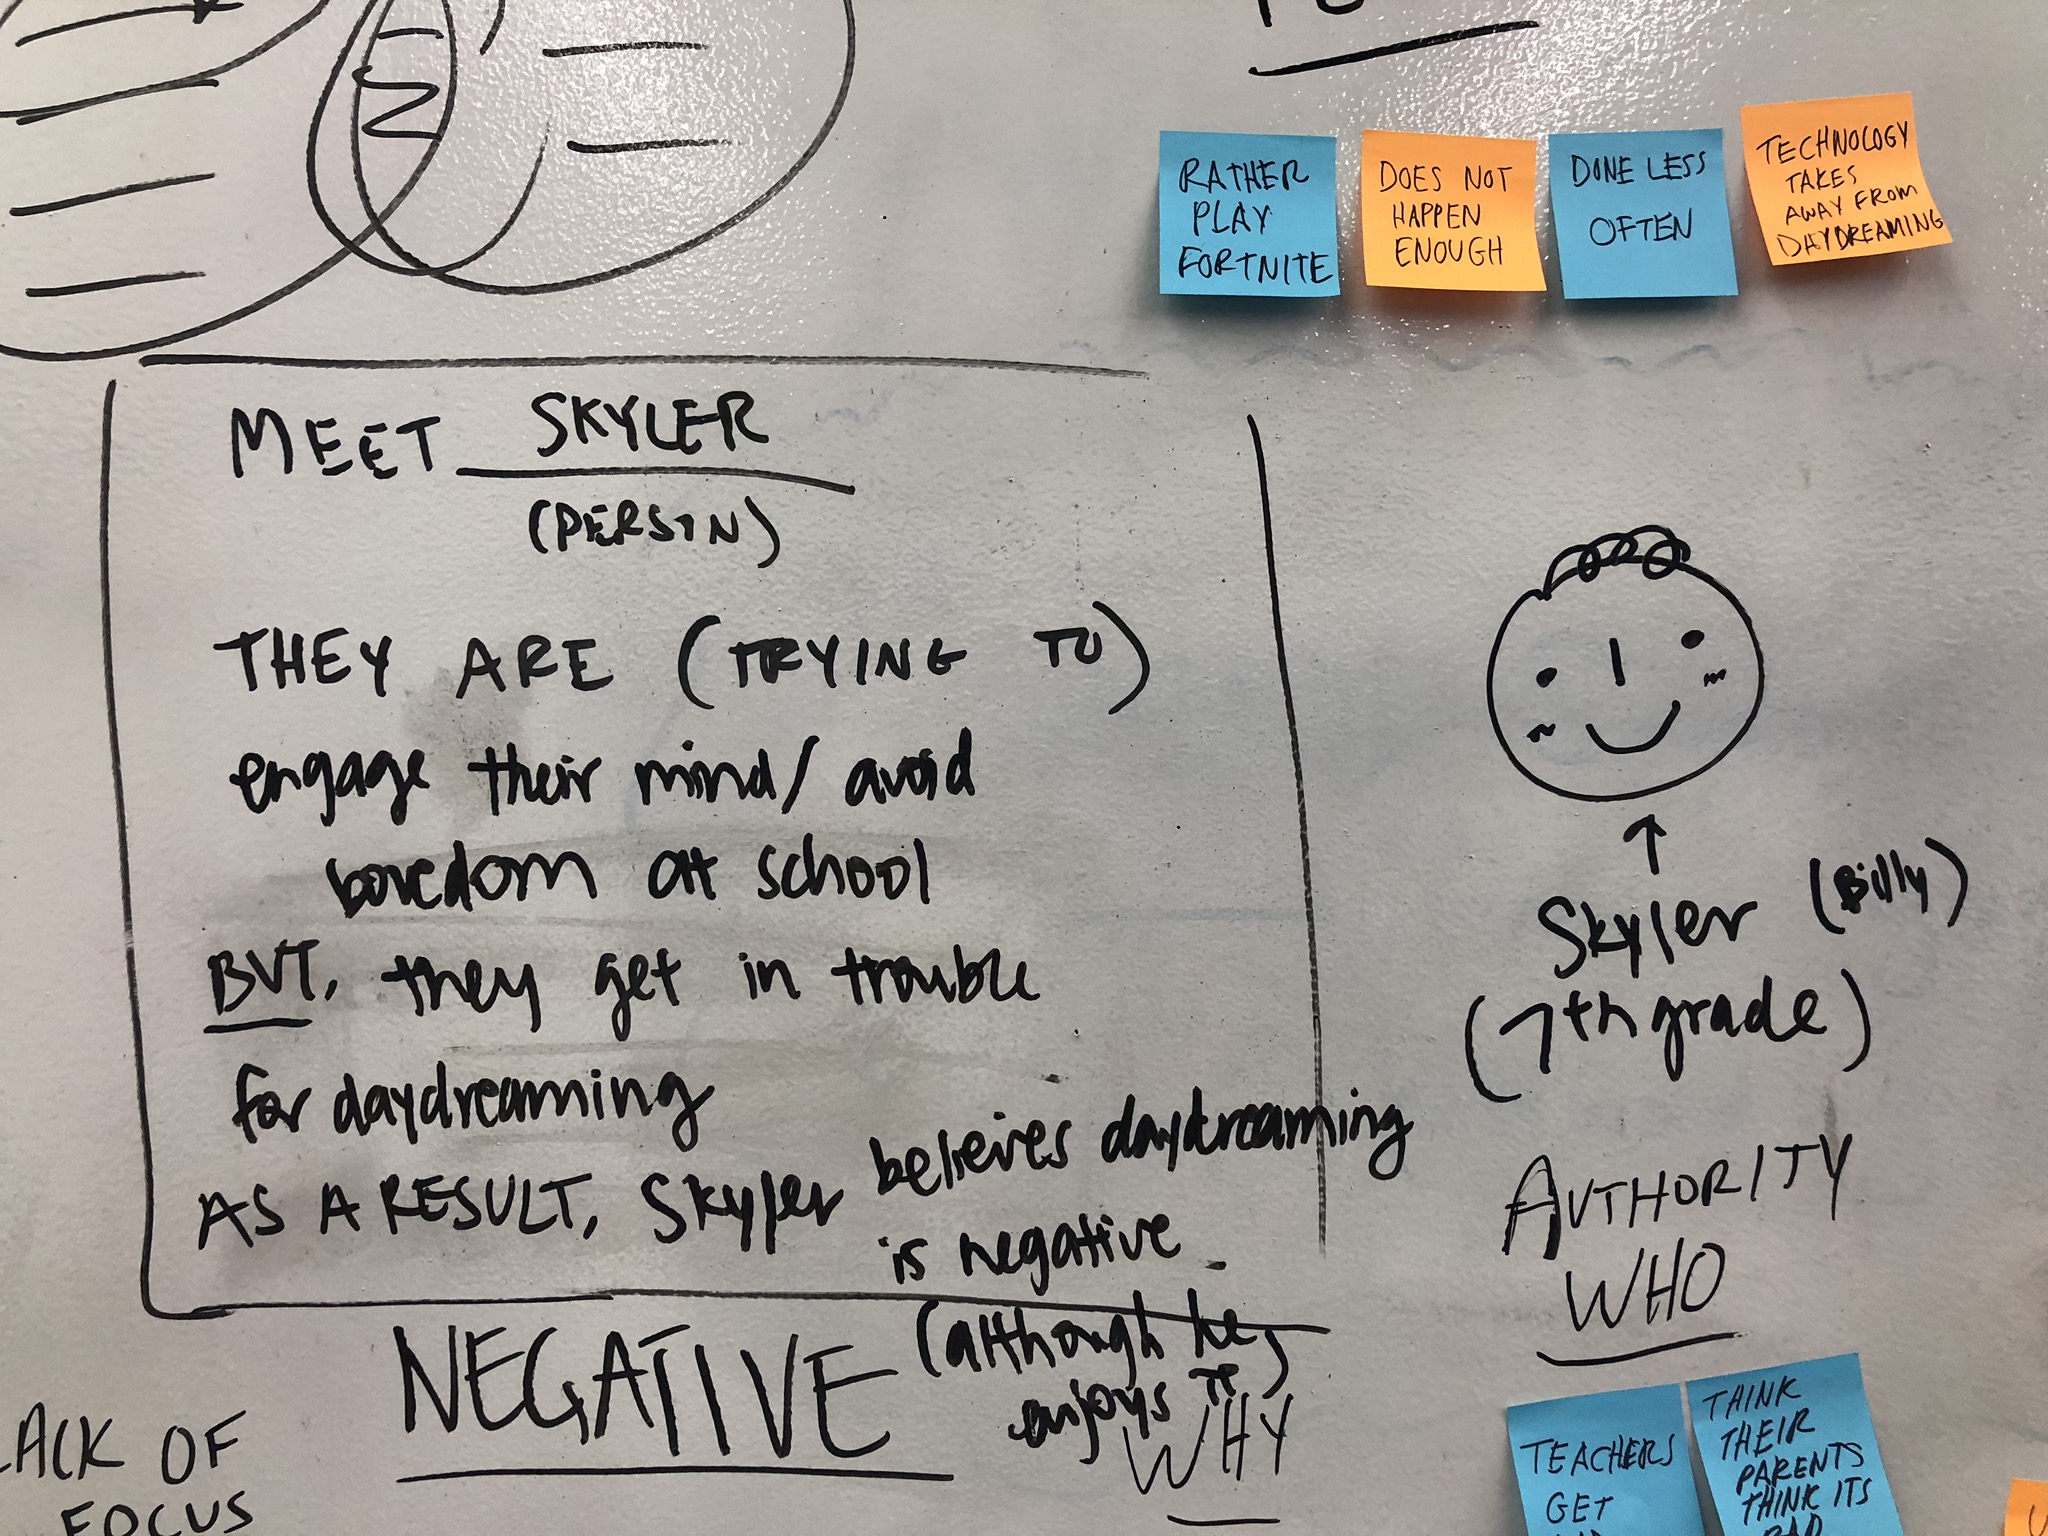 RATHER
PLAY
FORTNITE
DOES NOT
HAPPEN
ENOUGH
DONE LESS
OFTEN
TECHNOLOGY
TAKES
AWAY FROM
DAYDREAMING
MEET SKYLER
(PERSON)
THEY ARE (TRYING TO)
engage their mind/ avoid
boredom at school
BUT, they get in trouble
for daydreaming
AS A RESULT, Skyler believes daydreaming
is negative
(although he
enjoys it)
Skyler (Billy)
(7th grade)
AUTHORITY
WHO
NEGATIVE
WHY
LACK OF
FOCUS
TEACHERS
GET
THINK
THEIR
PARENTS
THINK ITS
BAD